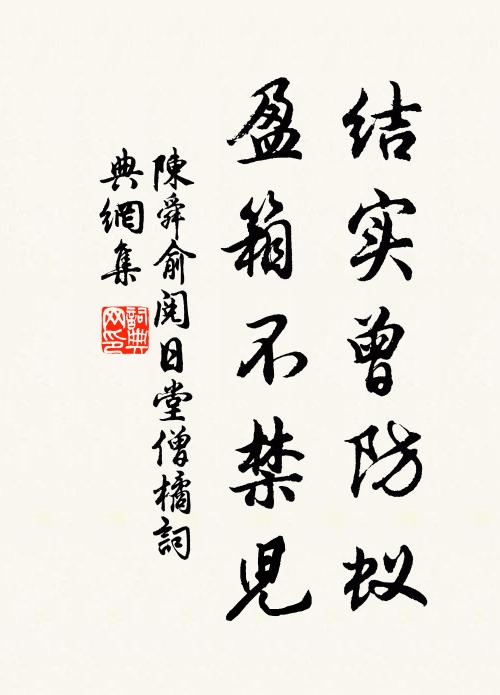 结实曾防蚁
盈箱不禁児
陳舜俞阅日堂僧橘詞
典網集
詞典网印